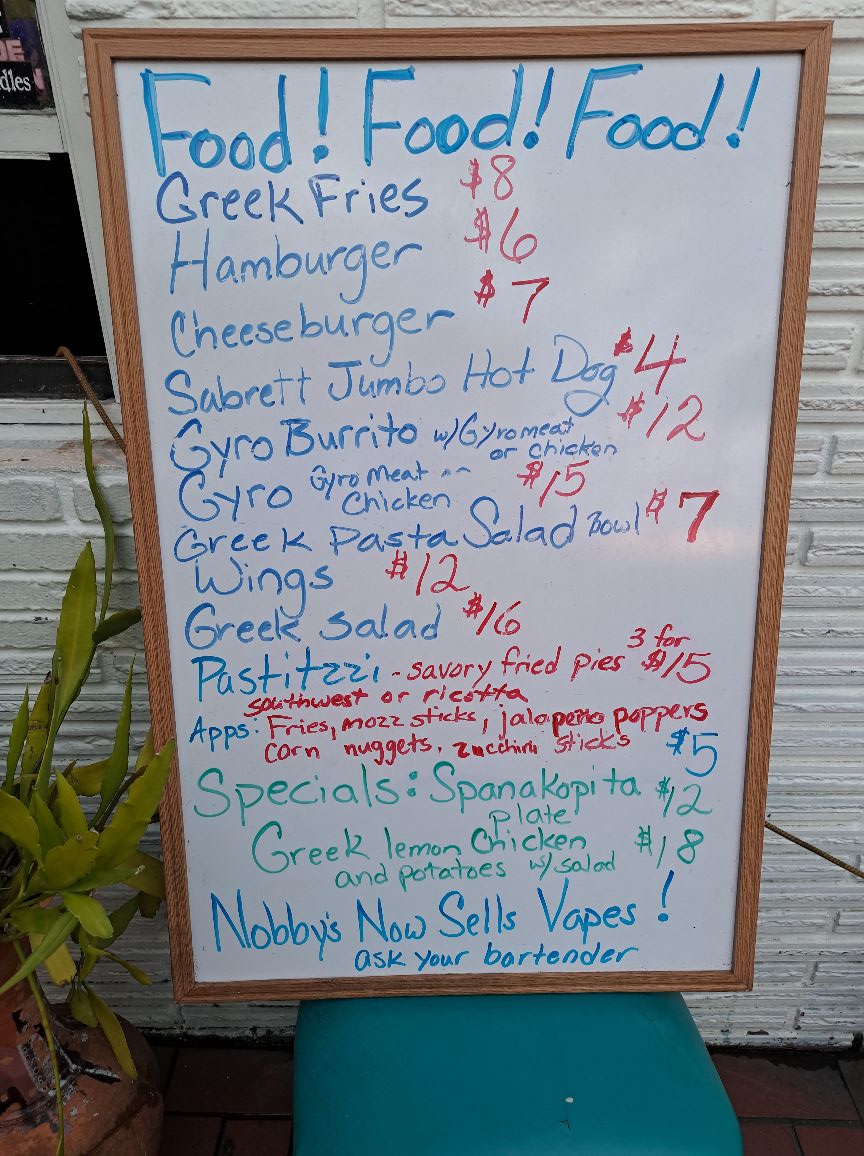 dles
Food! Food! Food!
Greek Fries $8
Hamburger $6
Cheeseburger $7
Sabrett Jumbo Hot Dog $4
Gyro Burrito w/Gyro meat or chicken $12
Gyro Gyro Meat or Chicken $15
Greek Pasta Salad Bowl $7
Wings $12
Greek Salad $16
Pastitzzi - savory fried pies 3 for $15
southwest or ricotta
Apps: Fries, mozz sticks, jalapeño poppers
corn nuggets, zucchini sticks $5
Specials: Spanakopita plate $12
Greek lemon Chicken $18
and potatoes w/ salad
Nobby's Now Sells Vapes!
ask your bartender